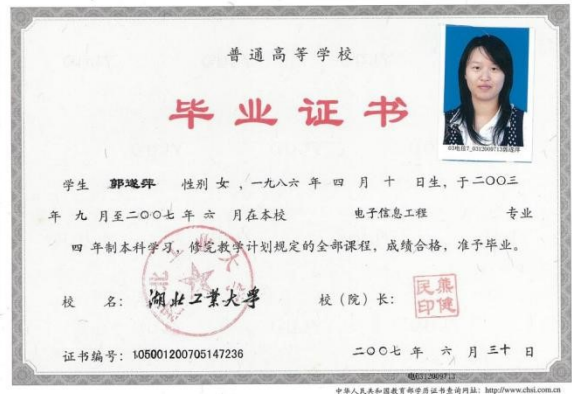 普通高等学校
毕业证书
03电信7_0312009713郭遂萍
学生 郭遂萍 性别 女 ，一九八六 年 四 月 十 日生，于二〇〇三
年 九 月至二〇〇七 年 六 月在本校 电子信息工程 专业
四 年制本科学习，修完教学计划规定的全部课程，成绩合格，准予毕业。
校 名： 湖北工业大学 校（院）长： 熊健民印
证书编号：105001200705147236 二〇〇七 年 六 月 三十 日
电0312009713
中华人民共和国教育部学历证书查询网址：http://www.chsi.com.cn